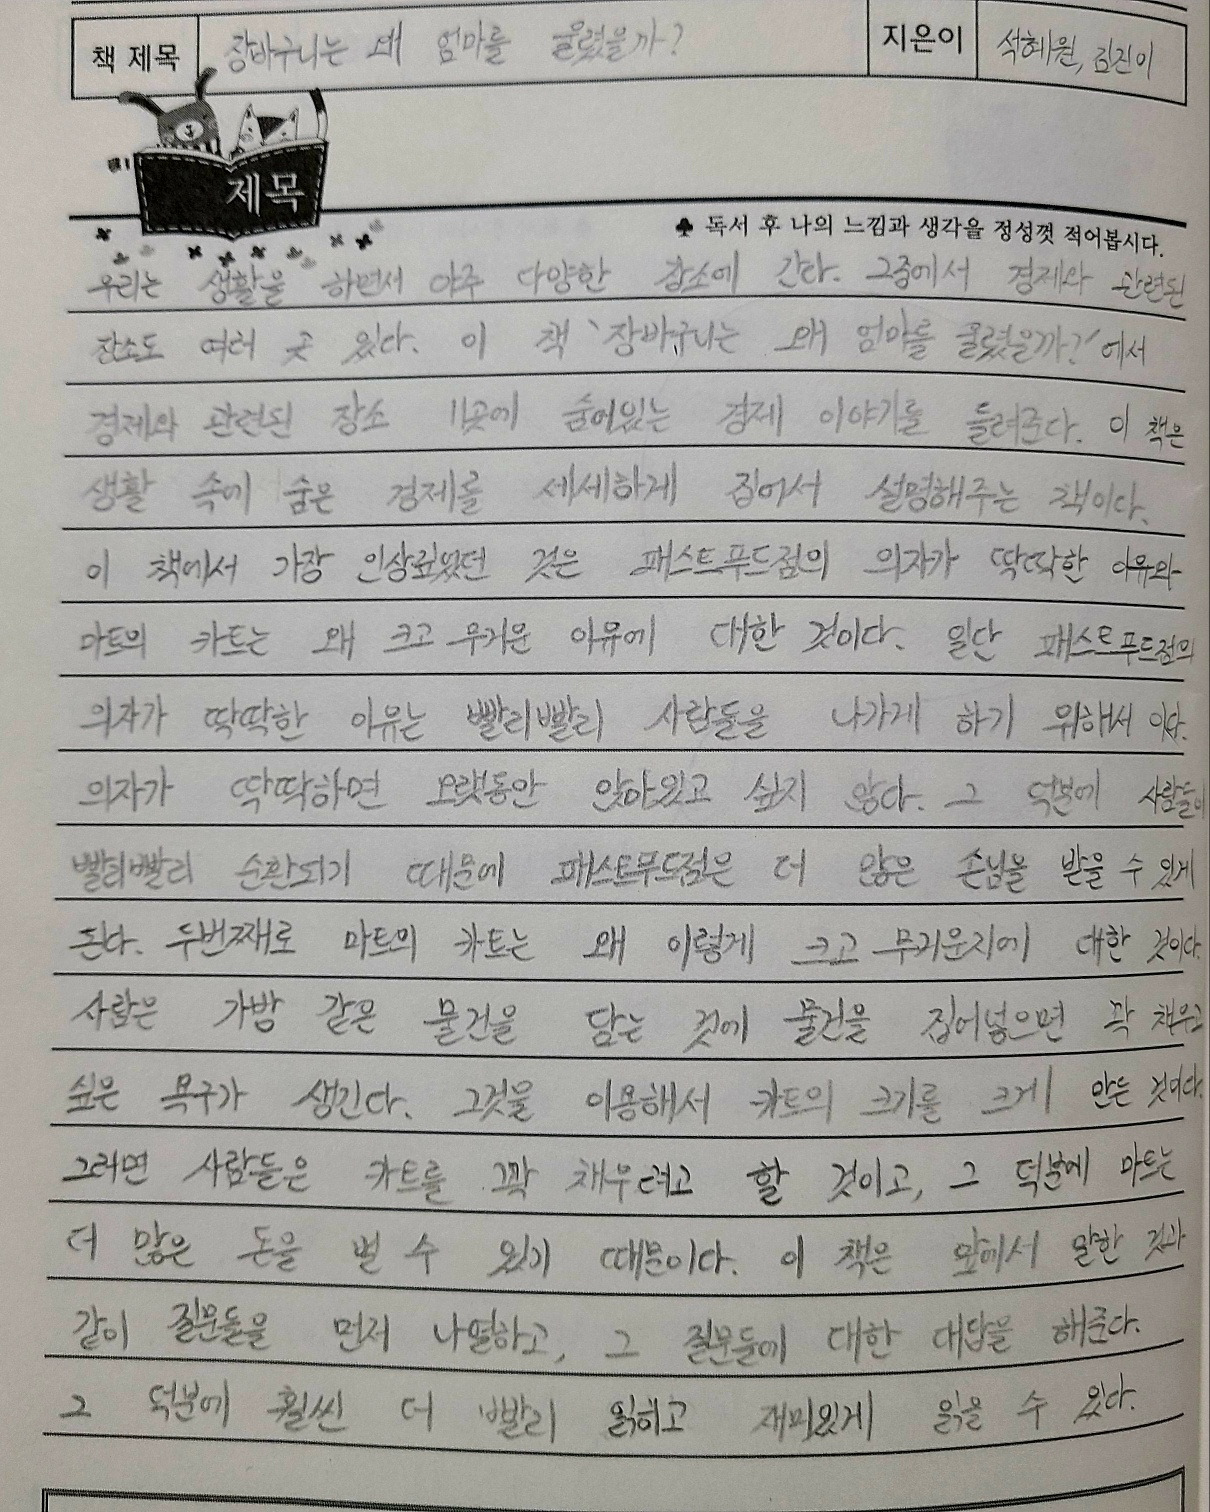 책 제목 장바구니는 왜 엄마를 울렸을까? 지은이 석혜원, 김진이
제목
♣ 독서 후 나의 느낌과 생각을 정성껏 적어봅시다.
우리는 생활을 하면서 아주 다양한 장소에 간다. 그중에서 경제와 관련된
장소도 여러 곳 있다. 이 책 '장바구니는 왜 엄마를 울렸을까?'에서
경제와 관련된 장소 11곳에 숨어있는 경제 이야기를 들려준다. 이 책은
생활 속에 숨은 경제를 세세하게 집어서 설명해주는 책이다.
이 책에서 가장 인상깊었던 것은 패스트푸드점의 의자가 딱딱한 이유와
마트의 카트는 왜 크고 무거운 이유에 대한 것이다. 일단 패스트푸드점의
의자가 딱딱한 이유는 빨리빨리 사람들을 나가게 하기 위해서 이다.
의자가 딱딱하면 오랫동안 앉아있고 싶지 않다. 그 덕분에 사람들이
빨리빨리 순환되기 때문에 패스트푸드점은 더 많은 손님을 받을 수 있게
된다. 두번째로 마트의 카트는 왜 이렇게 크고 무거운지에 대한 것이다.
사람은 가방 같은 물건을 담는 것에 물건을 집어넣으면 꽉 채우고
싶은 욕구가 생긴다. 그것을 이용해서 카트의 크기를 크게 만든 것이다.
그러면 사람들은 카트를 꽉 채우려고 할 것이고, 그 덕분에 마트는
더 많은 돈을 벌 수 있기 때문이다. 이 책은 앞에서 말한 것과
같이 질문들을 먼저 나열하고, 그 질문들에 대한 대답을 해준다.
그 덕분에 훨씬 더 빨리 읽히고 재미있게 읽을 수 있다.